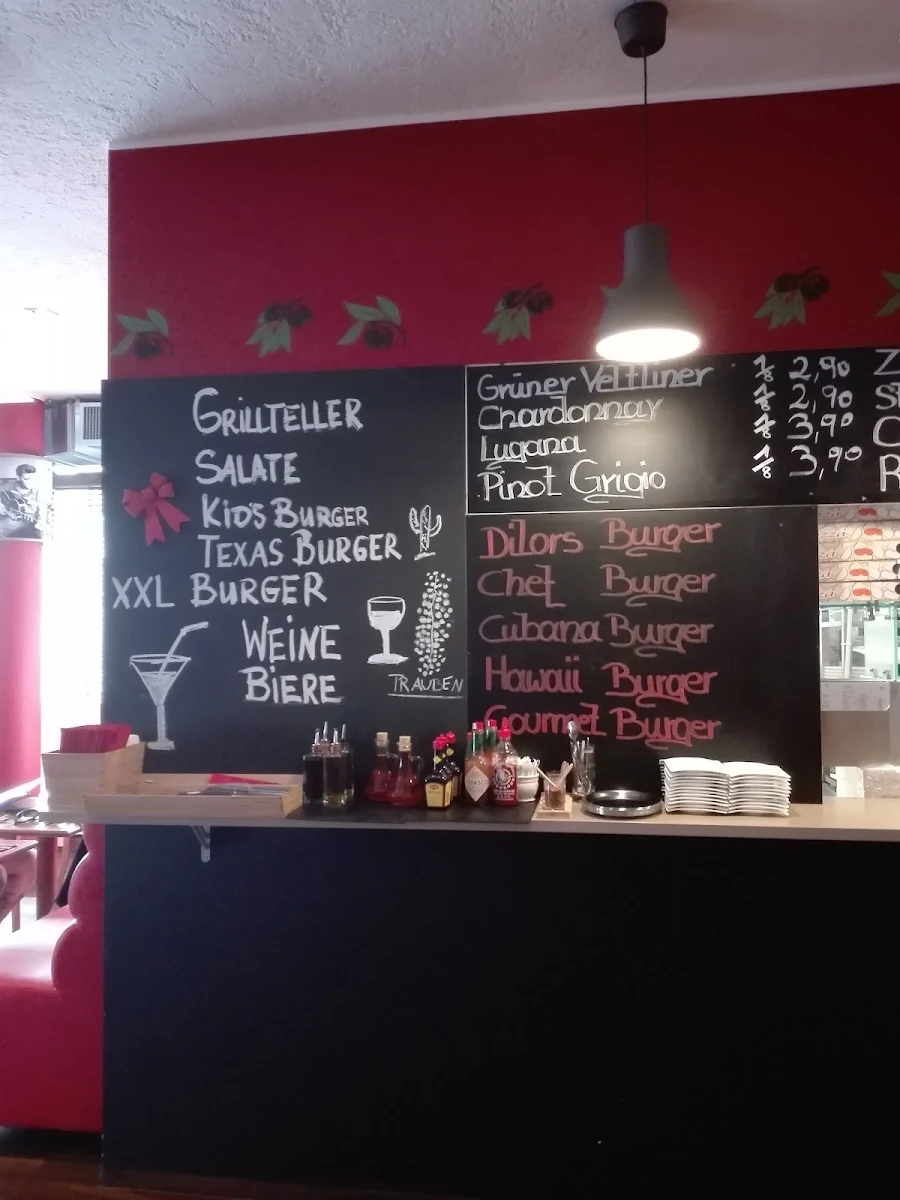 GRILLTELLER
SALATE
KID'S BURGER
TEXAS BURGER
XXL BURGER
WEINE
BIERE
TRAUBEN
Grüner Veltliner 1/8 2,90
Chardonnay 1/8 2,90
Lugana 1/8 3,90
Pinot Grigio 1/8 3,90
Dilors Burger
Chef Burger
Cubana Burger
Hawaii Burger
Gourmet Burger